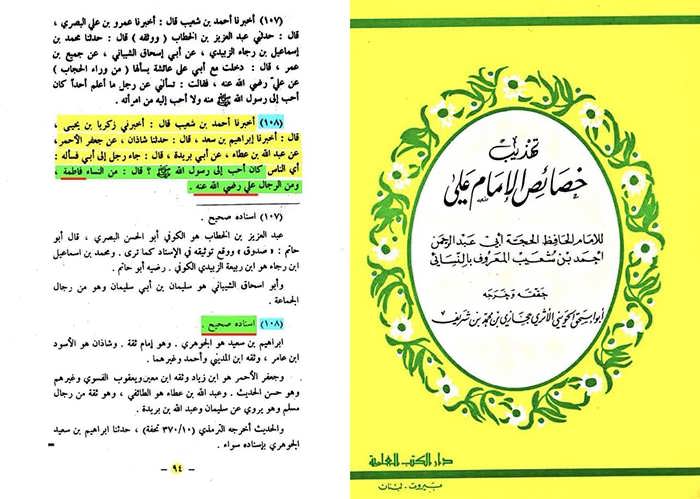 (١٠٧) أخبرنا أحمد بن شعيب قال : أخبرنا عمرو بن علي البصري ،
قال : حدثني عبد العزيز بن الخطاب ( ووثقه ) قال : حدثنا محمد بن
إسماعيل بن رجاء الزبيدي ، عن أبي إسحاق الشيباني ، عن جميع بن
عمر ، قال : دخلت مع أبي على عائشة يسألها ( من وراء الحجاب )
عن عليّ رضي الله عنه ، فقالت : تسألني عن رجل ما أعلم أحداً كان
أحب إلى رسول الله ﷺ منه ولا أحب إليه من امرأته .
(١٠٨) أخبرنا أحمد بن شعيب قال : أخبرني زكريا بن يحيى ،
قال : أخبرنا إبراهيم بن سعد ، قال : حدثنا شاذان ، عن جعفر الأحمر ،
عن عبد الله بن عطاء ، عن أبي بريدة ، قال : جاء رجل إلى أبي فسأله :
أي الناس كان أحب إلى رسول الله ﷺ ؟ قال : من النساء فاطمة ،
ومن الرجال علي رضي الله عنه .
(١٠٧) اسناده صحيح .
عبد العزيز بن الخطاب هو الكوفي أبو الحسن البصري ، قال أبو
حاتم : « صدوق » ووقع توثيقه في الإسناد كما ترى . ومحمد بن اسماعيل
ابن رجاء هو ابن ربيعة الزبيدي الكوفي . رضيه أبو حاتم .
وأبو اسحاق الشيباني هو سليمان بن أبي سليمان وهو من رجال
الجماعة .
(١٠٨) اسناده صحيح .
ابراهيم بن سعيد هو الجوهري . وهو إمام ثقة . وشاذان هو الأسود
ابن عامر ، وثقه ابن المديني وأحمد وغيرهما .
وجعفر الأحمر هو ابن زياد وثقه ابن معين ويعقوب الفسوي وغيرهم
وهو حسن الحديث . وعبد الله بن عطاء هو الطائفي ، وهو ثقة من رجال
مسلم وهو يروي عن سليمان وعبد الله بن بريدة .
والحديث أخرجه الترمذي ( ١٠/ ٣٧٠ تحفة ) ، حدثنا ابراهيم بن سعيد
الجوهري بإسناده سواء .
٩٤
تهذيب
خصائص الإمام علي
للامام الحافظ الحجة أبي عبد الرحمن
احمد بن شعيب المعروف بالنسائي
حققه وخرجه
أبو اسحق الحويني الأثري حجازي بن محمد بن شريف
دار الكتب العلمية
بيروت - لبنان